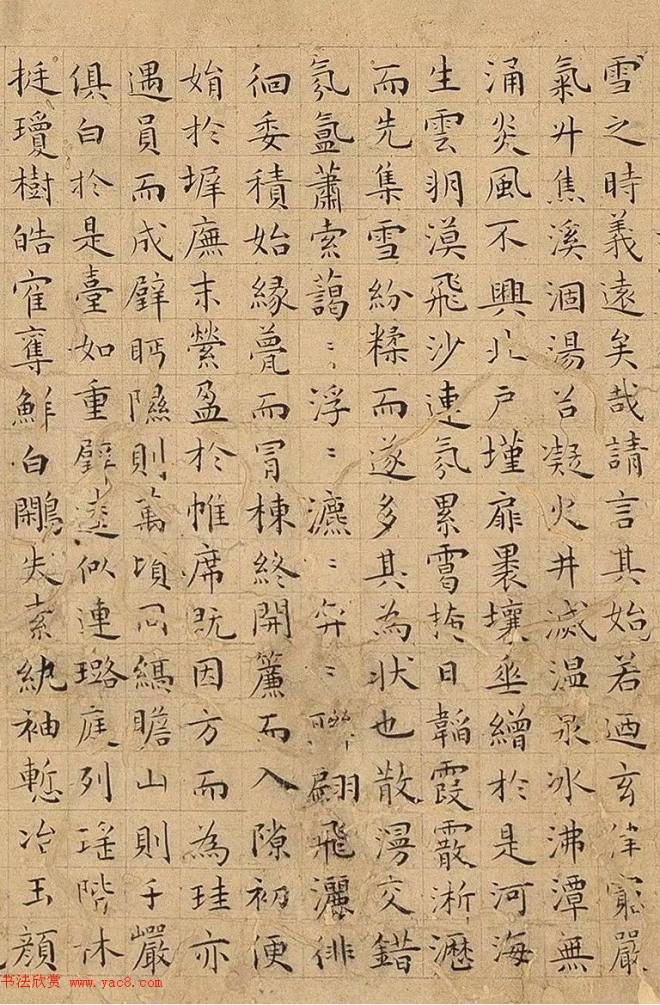 雪之時義遠矣哉請言其始若迺玄律窮嚴
氣升焦溪涸湯谷凝火井滅温泉冰沸潭無
涌炎風不興北戶墐扉裹壤垂繒於是河海
生雲朔漠飛沙連氛累靄掩日韜霞霰淅瀝
而先集雪紛糅而遂多其為状也散漫交錯
氛氲蕭索藹〻浮〻瀌〻弈〻聯翩飛灑徘
徊委積始緣甍而冒棟終開簾而入隙初便
娟於墀廡末縈盈於帷席既因方而為珪亦
遇員而成璧眄隰則萬頃同縞瞻山則千巖
俱白於是臺如重璧逵似連璐庭列瑤階林
挺瓊樹皓隺奪鮮白鷴失素紈袖慙冶玉顏
书法欣赏 www.yac8.com